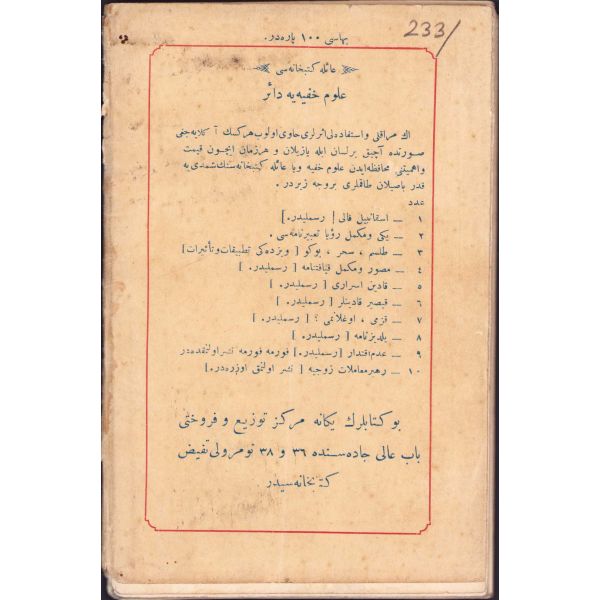 233/
بهاسی ۱۰۰ پاره در.
عائله كتبخانه سی
علوم خفیه یه دائر
اك مراقلی واستفاده لی اثرلری حاوی اولوب هركسك آ كلایه جغی
صورتده آچیق برلسان ایله یازیلان و هرزمان ایچون قیمت
واهمیتنی محافظه ایدن علوم خفیه ویا عائله كتبخانه سنك شمدی یه
قدر باصیلان طاقملری بروجه زیردر.
عدد
۱ — اسقامبیل فالی [ رسملیدر. ]
۲ — یكی ومكمل رؤیا تعبیرنامه سی .
۳ — طلسم ، سحر ، بوكو [ ویزده كی تطبیقات وتأثیرات ]
۴ — مصور ومكمل قیافتنامه [ رسملیدر. ]
۵ — قادین اسراری [ رسملیدر. ]
۶ — قیصیر قادینلر [ رسملیدر. ]
۷ — قزمی ، اوغلانمی ؟ [ رسملیدر. ]
۸ — یلدیزنامه [ رسملیدر. ]
۹ — عدم اقتدار [رسملیدر.] فورمه فورمه نشر اولنمقده در
۱۰ — رهبر معاملات زوجیه [ نشر اولنمق اوزره در.]
بو كتابلرك یكانه مركز توزیع و فروختی
باب عالی جاده سنده ۳۶ و ۳۸ نومرولی تفیض
كتبخانه سیدر.